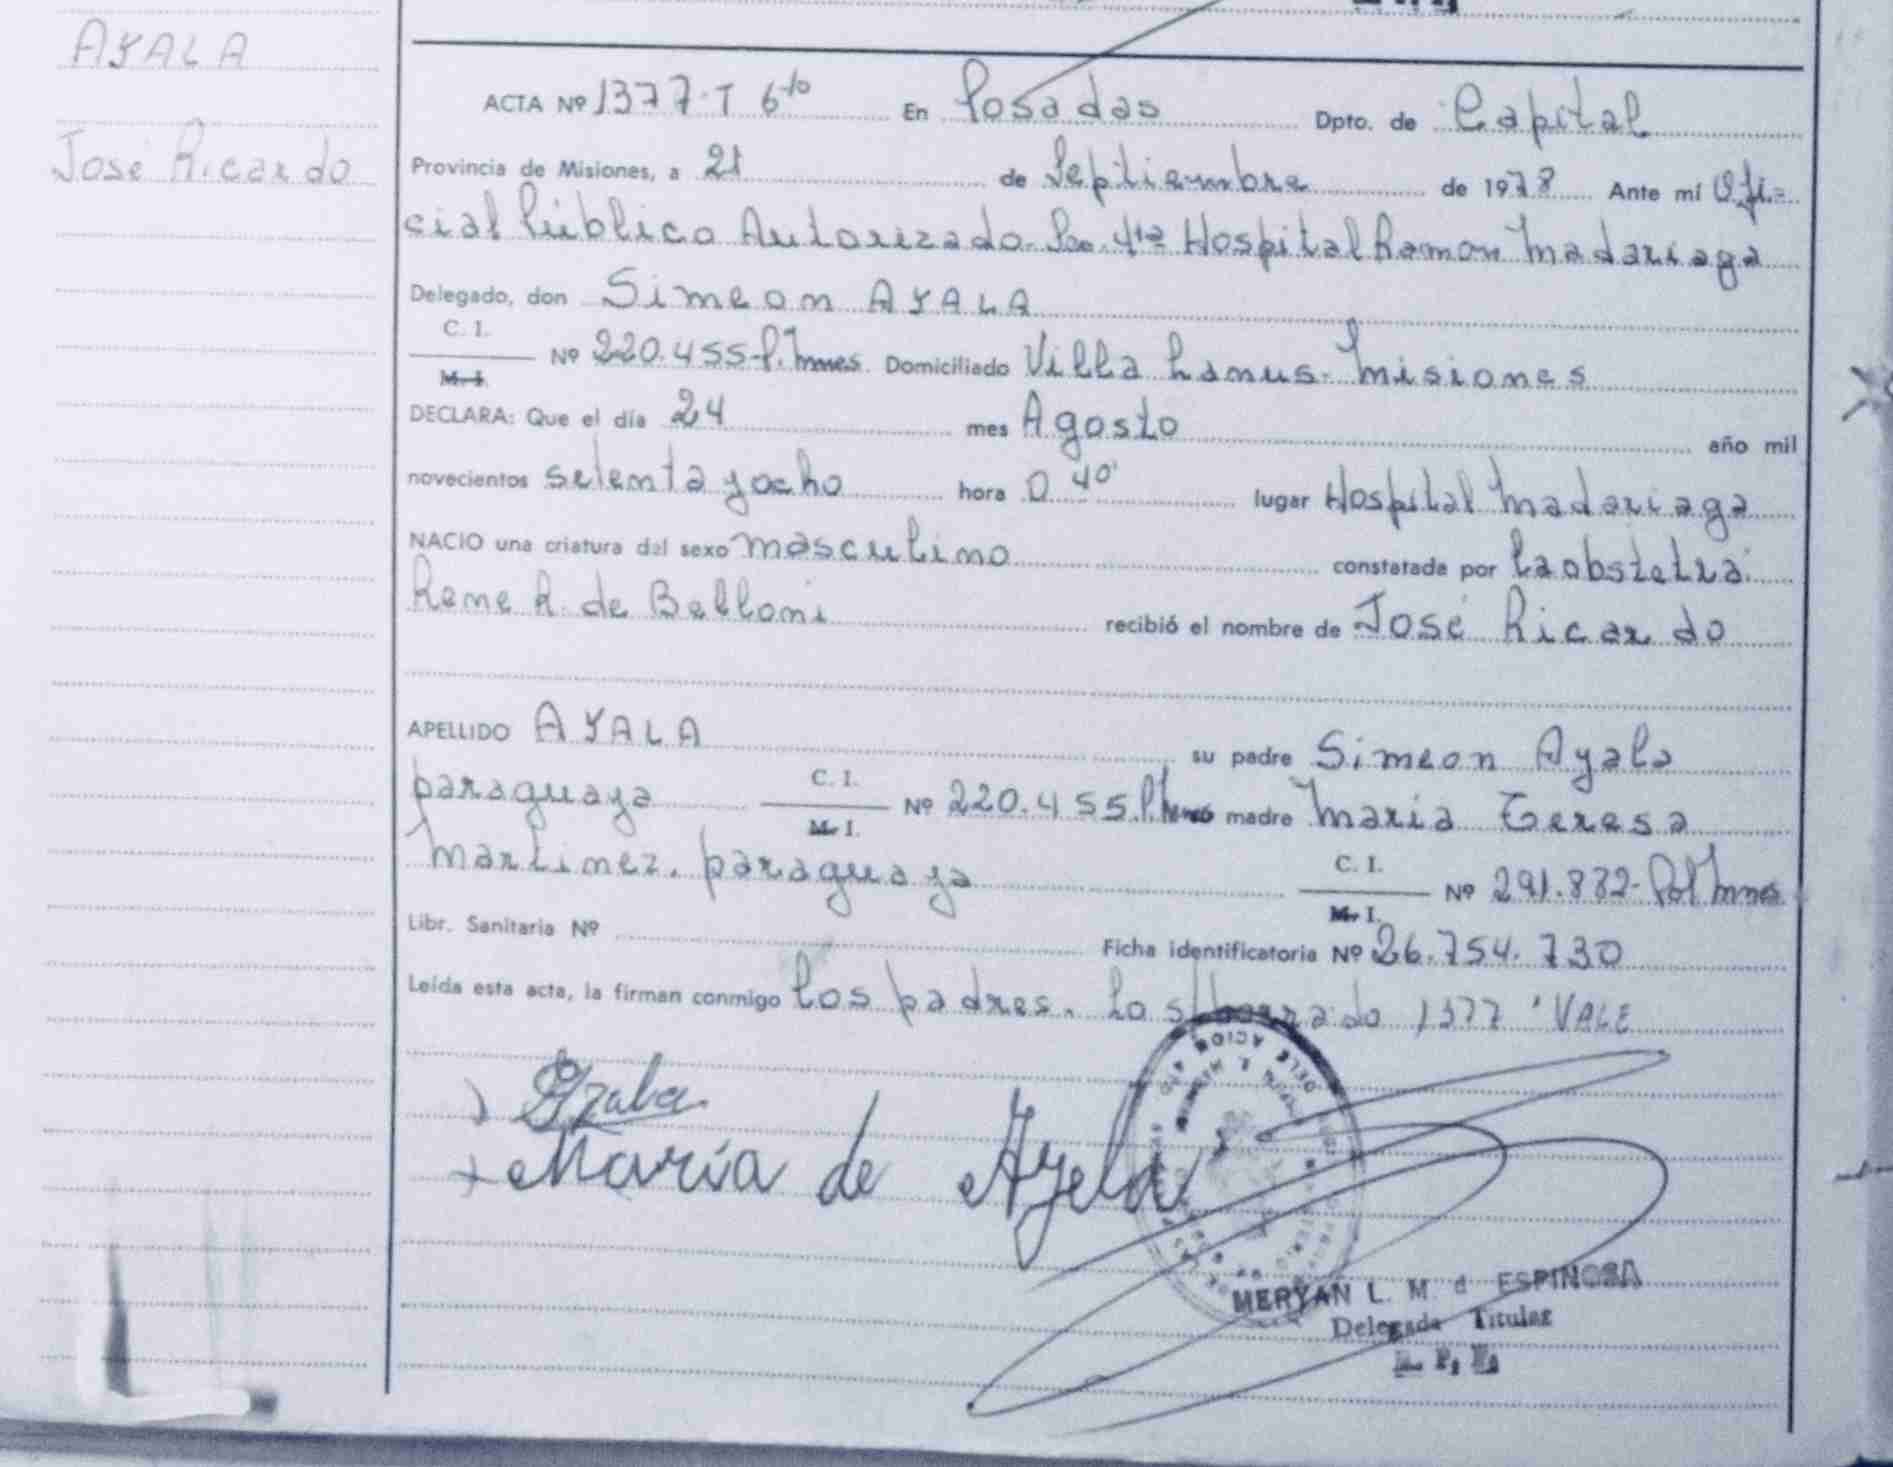 AYALA
José Ricardo
ACTA Nº 1377·T 6to En Posadas Dpto. de Capital
Provincia de Misiones, a 21 de Septiembre de 1978 Ante mí Ofi=
cial Público Autorizado. Sec. 4ta Hospital Ramon Madariaga
Delegado, don Simeon AYALA
C. I.
M. I. Nº 220.455-P.Mnes. Domiciliado Villa Lanus. Misiones
DECLARA: Que el día 24 mes Agosto año mil
novecientos setenta y ocho hora 0 40' lugar Hospital Madariaga
NACIO una criatura del sexo masculino constatada por La obstetra
Rene R. de Belloni recibió el nombre de José Ricardo
APELLIDO AYALA su padre Simeon Ayala
paraguaya C. I. M. I. Nº 220.455.P.Mnes madre Maria Teresa
Martinez. paraguaya C. I. M. I. Nº 291.882-Pol Mnes
Libr. Sanitaria Nº Ficha identificatoria Nº 26.754.730
Leída esta acta, la firman conmigo los padres. Lo s/borrado 1377 "VALE
Ayala
María de Ayala
MERYAN L. M. d ESPINOSA
Delegada Titular